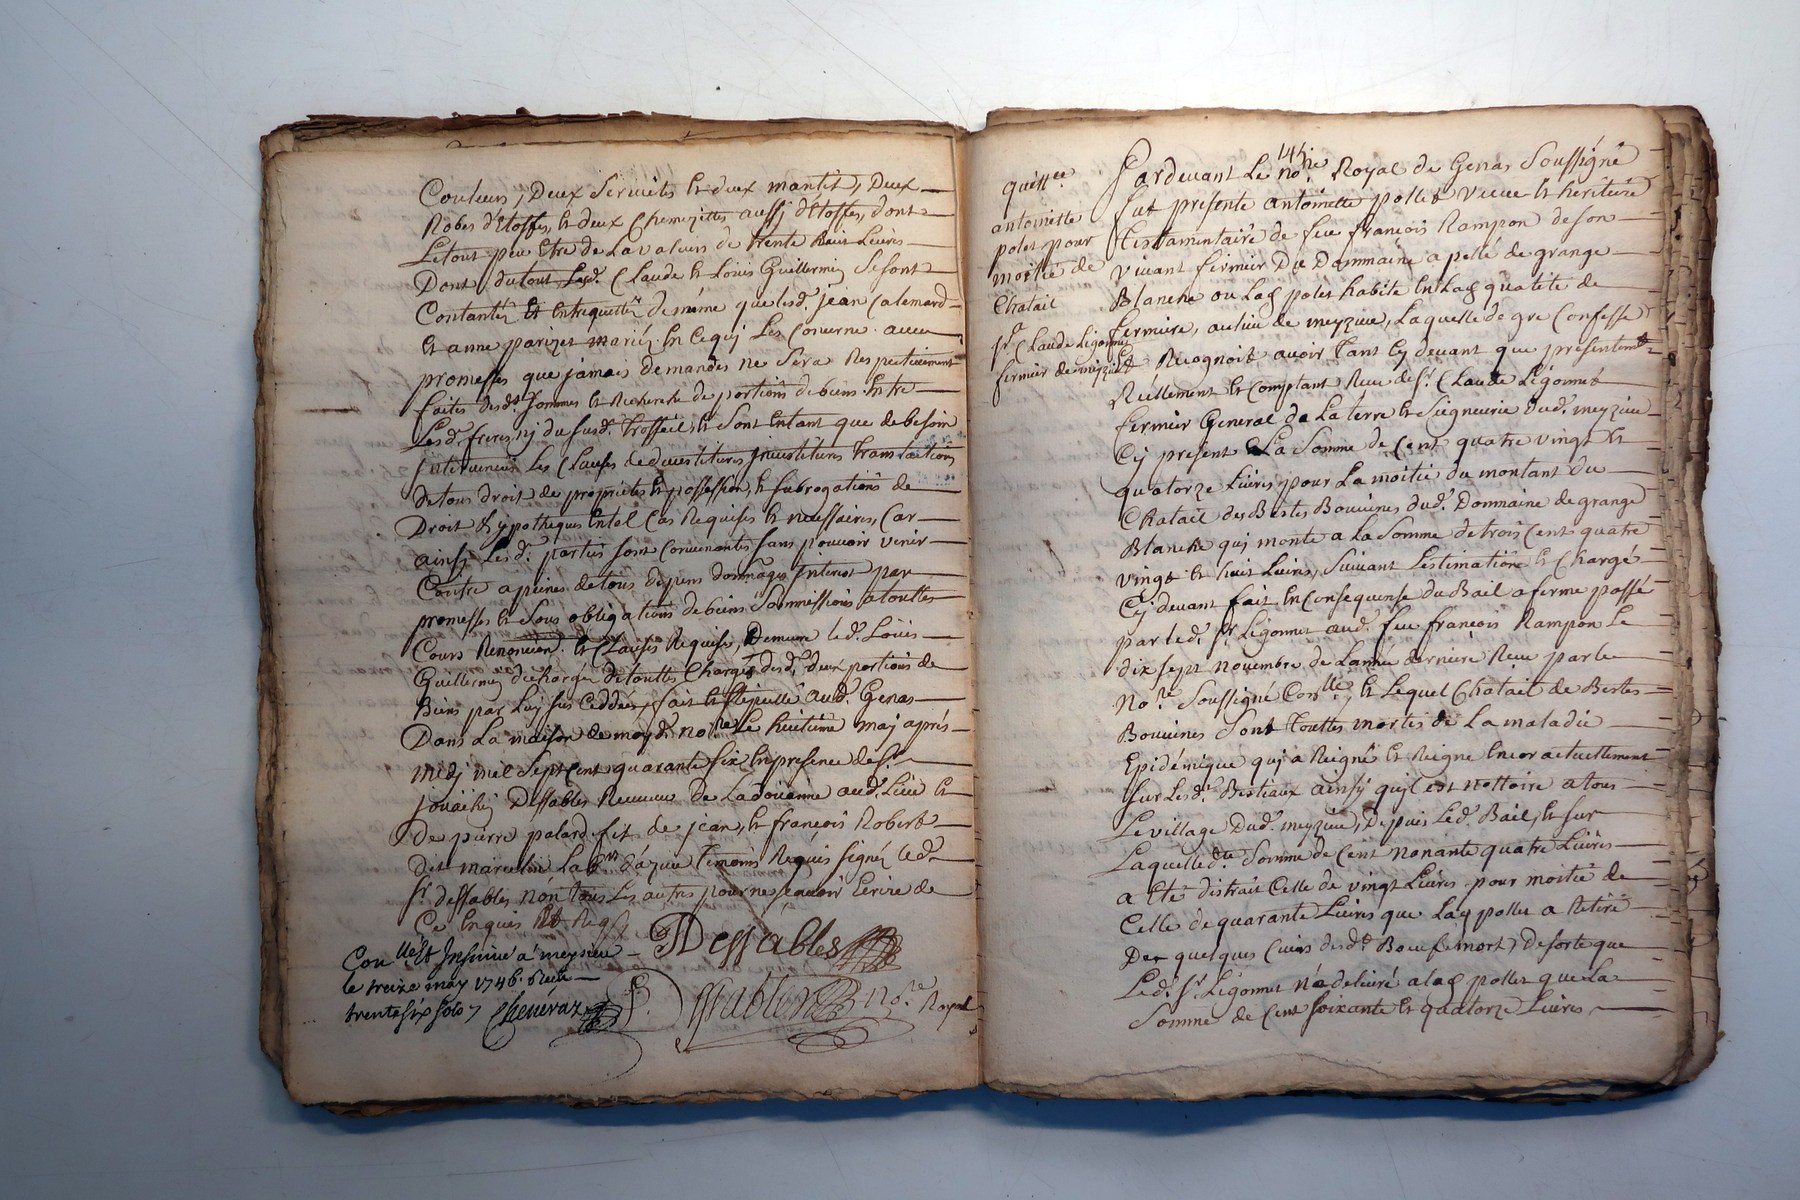 Couleurs, Deux Serviete et deux mantis, Deux
Robes d'Etoffes, et deux Chemizettes aussj d'Etoffes, dont
Letout peu Etre de La valeurs de trente huit Livres
Dont du tout Lesd. Claude et Loüis Guillermin Se sont
Contantés et Entrequittés de même que lesd. jean Calemard
Et anne parizet mariés En Cequj Les Concerne avec
promesses que jamais demandes ne Sera Respectivement
faites desd. Sommes et Recherche de portions de biens Entre
Lesd. freres, nj du Susd. Trosseil, et Sont Entant que de besoin
jntervenues Les Clauses de devestitures jnvestitures translations
de tous droit de proprietes et possession, et subrogations de
Droit d'hypotheques En tel Cas Requises et necessaires, Car
ainsy Lesd. parties sont Convenantes sans pouvoir venir
Contre a peines de tous depens dommages jnterest par
promesses et sous obligations de biens Sommissions a touttes
Cours Renonciaon. et Clauses Requises, Demeure led. Loüis
Guillermin dechargé de touttes Charges desd. deux portions de
Biens par Luy sus Ceddées, fait et Stipullé aud. Genas
Dans La maison de moyd. nore Le huitième maj après
midj mil Sept Cent quarante six En presence de Sr
joüachin Dessables Receveur de La doüanne aud. Lieu et
de pierre palard fils de jean, et françois Robert
dit marcelin Labrs d'azieu Temoins Requis signéz led.
Sr dessables non tous Les autres pour ne sçavoir Ecrire de
Ce Enquis Et Reqs
JDessables
Conllé et Insinué a meyzieu
le treize may 1746. Reçu
trente six sols Cheneraz
nore Royal
145
quitt.ce
antoinette
polet pour
moitié de
Chatail
Sr Claude Ligonnet
fermier de meyzieu
Pardevant Le nore Royal de Genas Soussigné
fut presente antoinette pollet veuve et heritiere
Testamentaire de feu françois Rampon de son
vivant fermier Du Dommaine apellé de grange
Blanche ou Lad. polet habite En Lad. qualité de
fermiere, au lieu de meyzieu, Laquelle de gre Confesse
Et Recognoit avoir Tant Cy devant que presentemt
Réellement et Comptant Receu de Sr Claude Ligonnet
fermier General de La terre et Seigneurie dud. meyzieu
Cy present La Somme de Cent quatre vingt et
quatorze Livres pour La moitié du montant du
Chatail des Bestes Bouvines dud. Dommaine de grange
Blanche quj monte a La Somme de trois Cent quatre
vingt et huit Livres, Suivant L'estimation et Chargé
Cy devant fait En Consequense du Bail a ferme passé
par led. Sr Ligonnet aud. feu françois Rampon Le
dix sept novembre de L'année derniere Receu par le
No.re Soussigné Conllé, et Lequel Chatail de Bestes
Bouvines Sont Touttes mortes de La maladie
Epidémique quj a Reigné et Reigne Encor actuellement
sur Lesd. Bestiaux ainsy quj Est nottoire a tous
Le village Dud. meyzieu, Depuis Led. Bail, et sur
Laquelle dte Somme de Cent Nonante quatre Livres
a Eté distrait Celle de vingt Livres pour moitié de
Celle de quarante Livres que Lad. pollet a Retiré
Des quelques Cuirs desd. Bœufs mort, de sorte que
Led. Sr Ligonnet n'a delivré a lad. pollet que La
Somme de Cent soixante et quatorze Livres